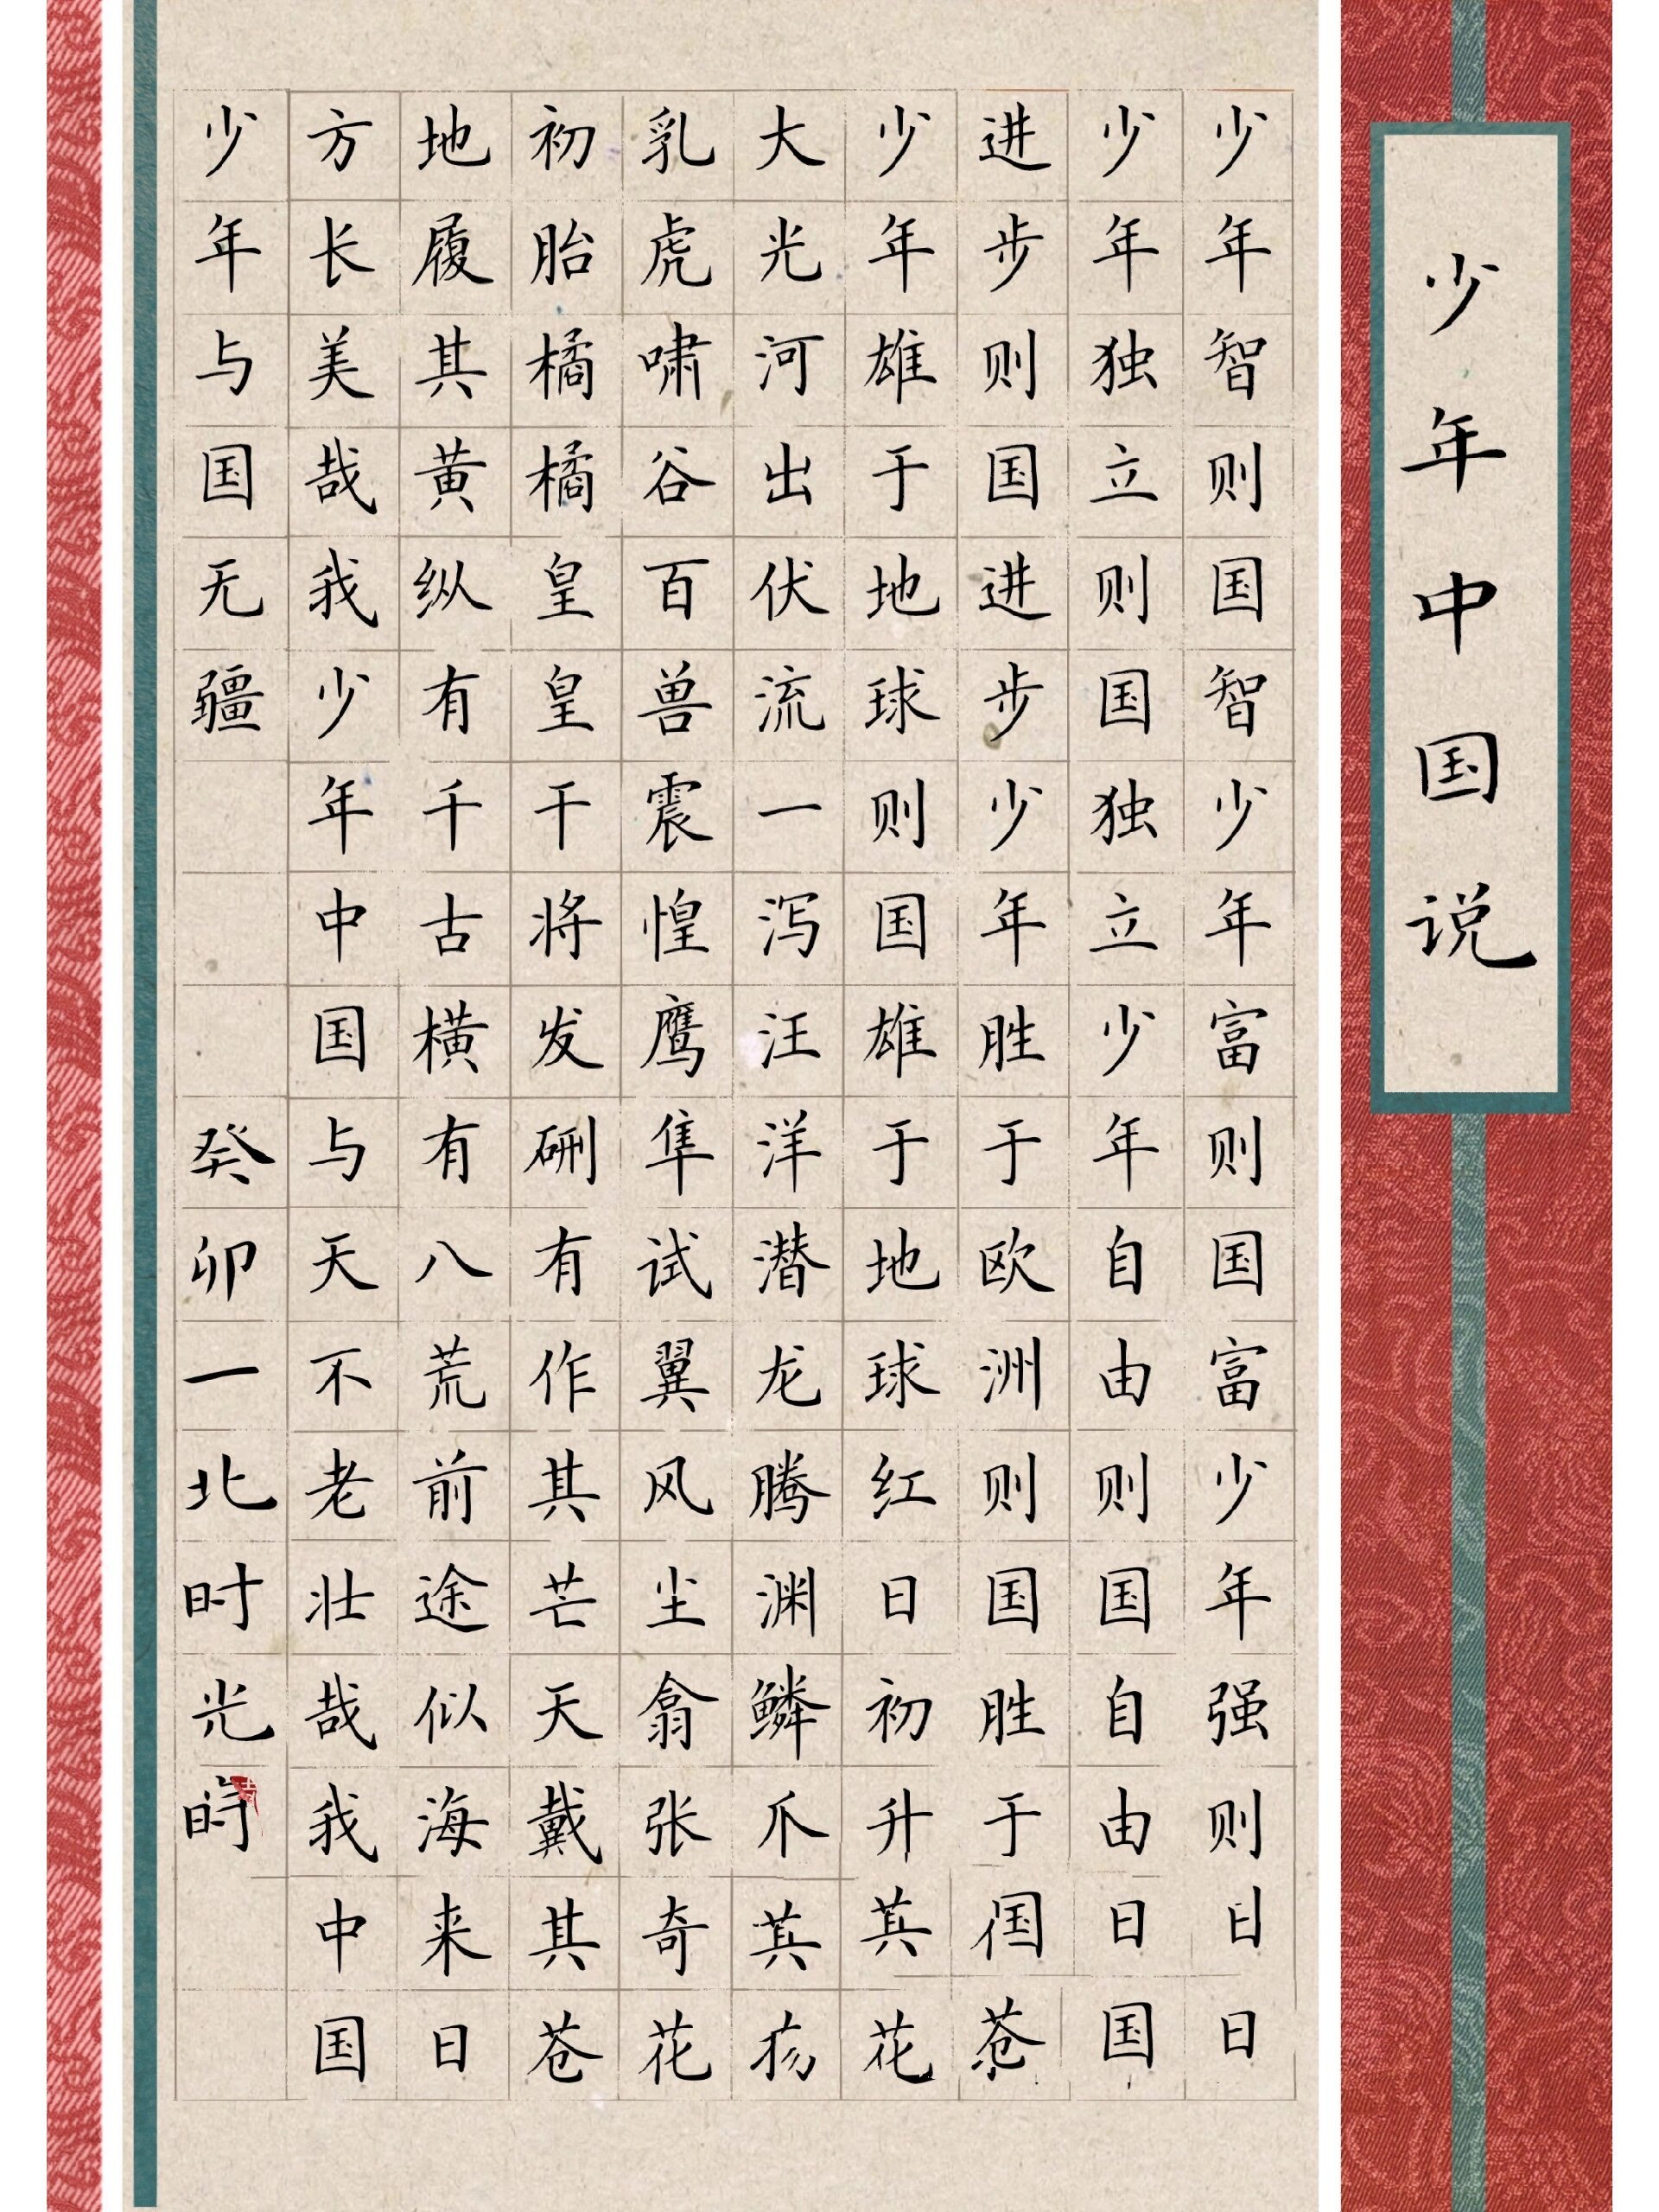 少年中国说
少年智则国智少年富则国富少年强则日日
少年独立则国独立少年自由则国自由日国
进步则国进步少年胜于欧洲则国胜于国苍
少年雄于地球则国雄于地球红日初升萁花
大光河出伏流一泻汪洋潜龙腾渊鳞爪萁
乳虎啸谷百兽震惶鹰隼试翼风尘翕张奇花
初胎橘橘皇皇干将发硎有作其芒天戴其苍
地履其黄纵有千古横有八荒前途似海来日
方长美哉我少年中国与天不老壮哉我中国
少年与国无疆
癸卯一北时光时